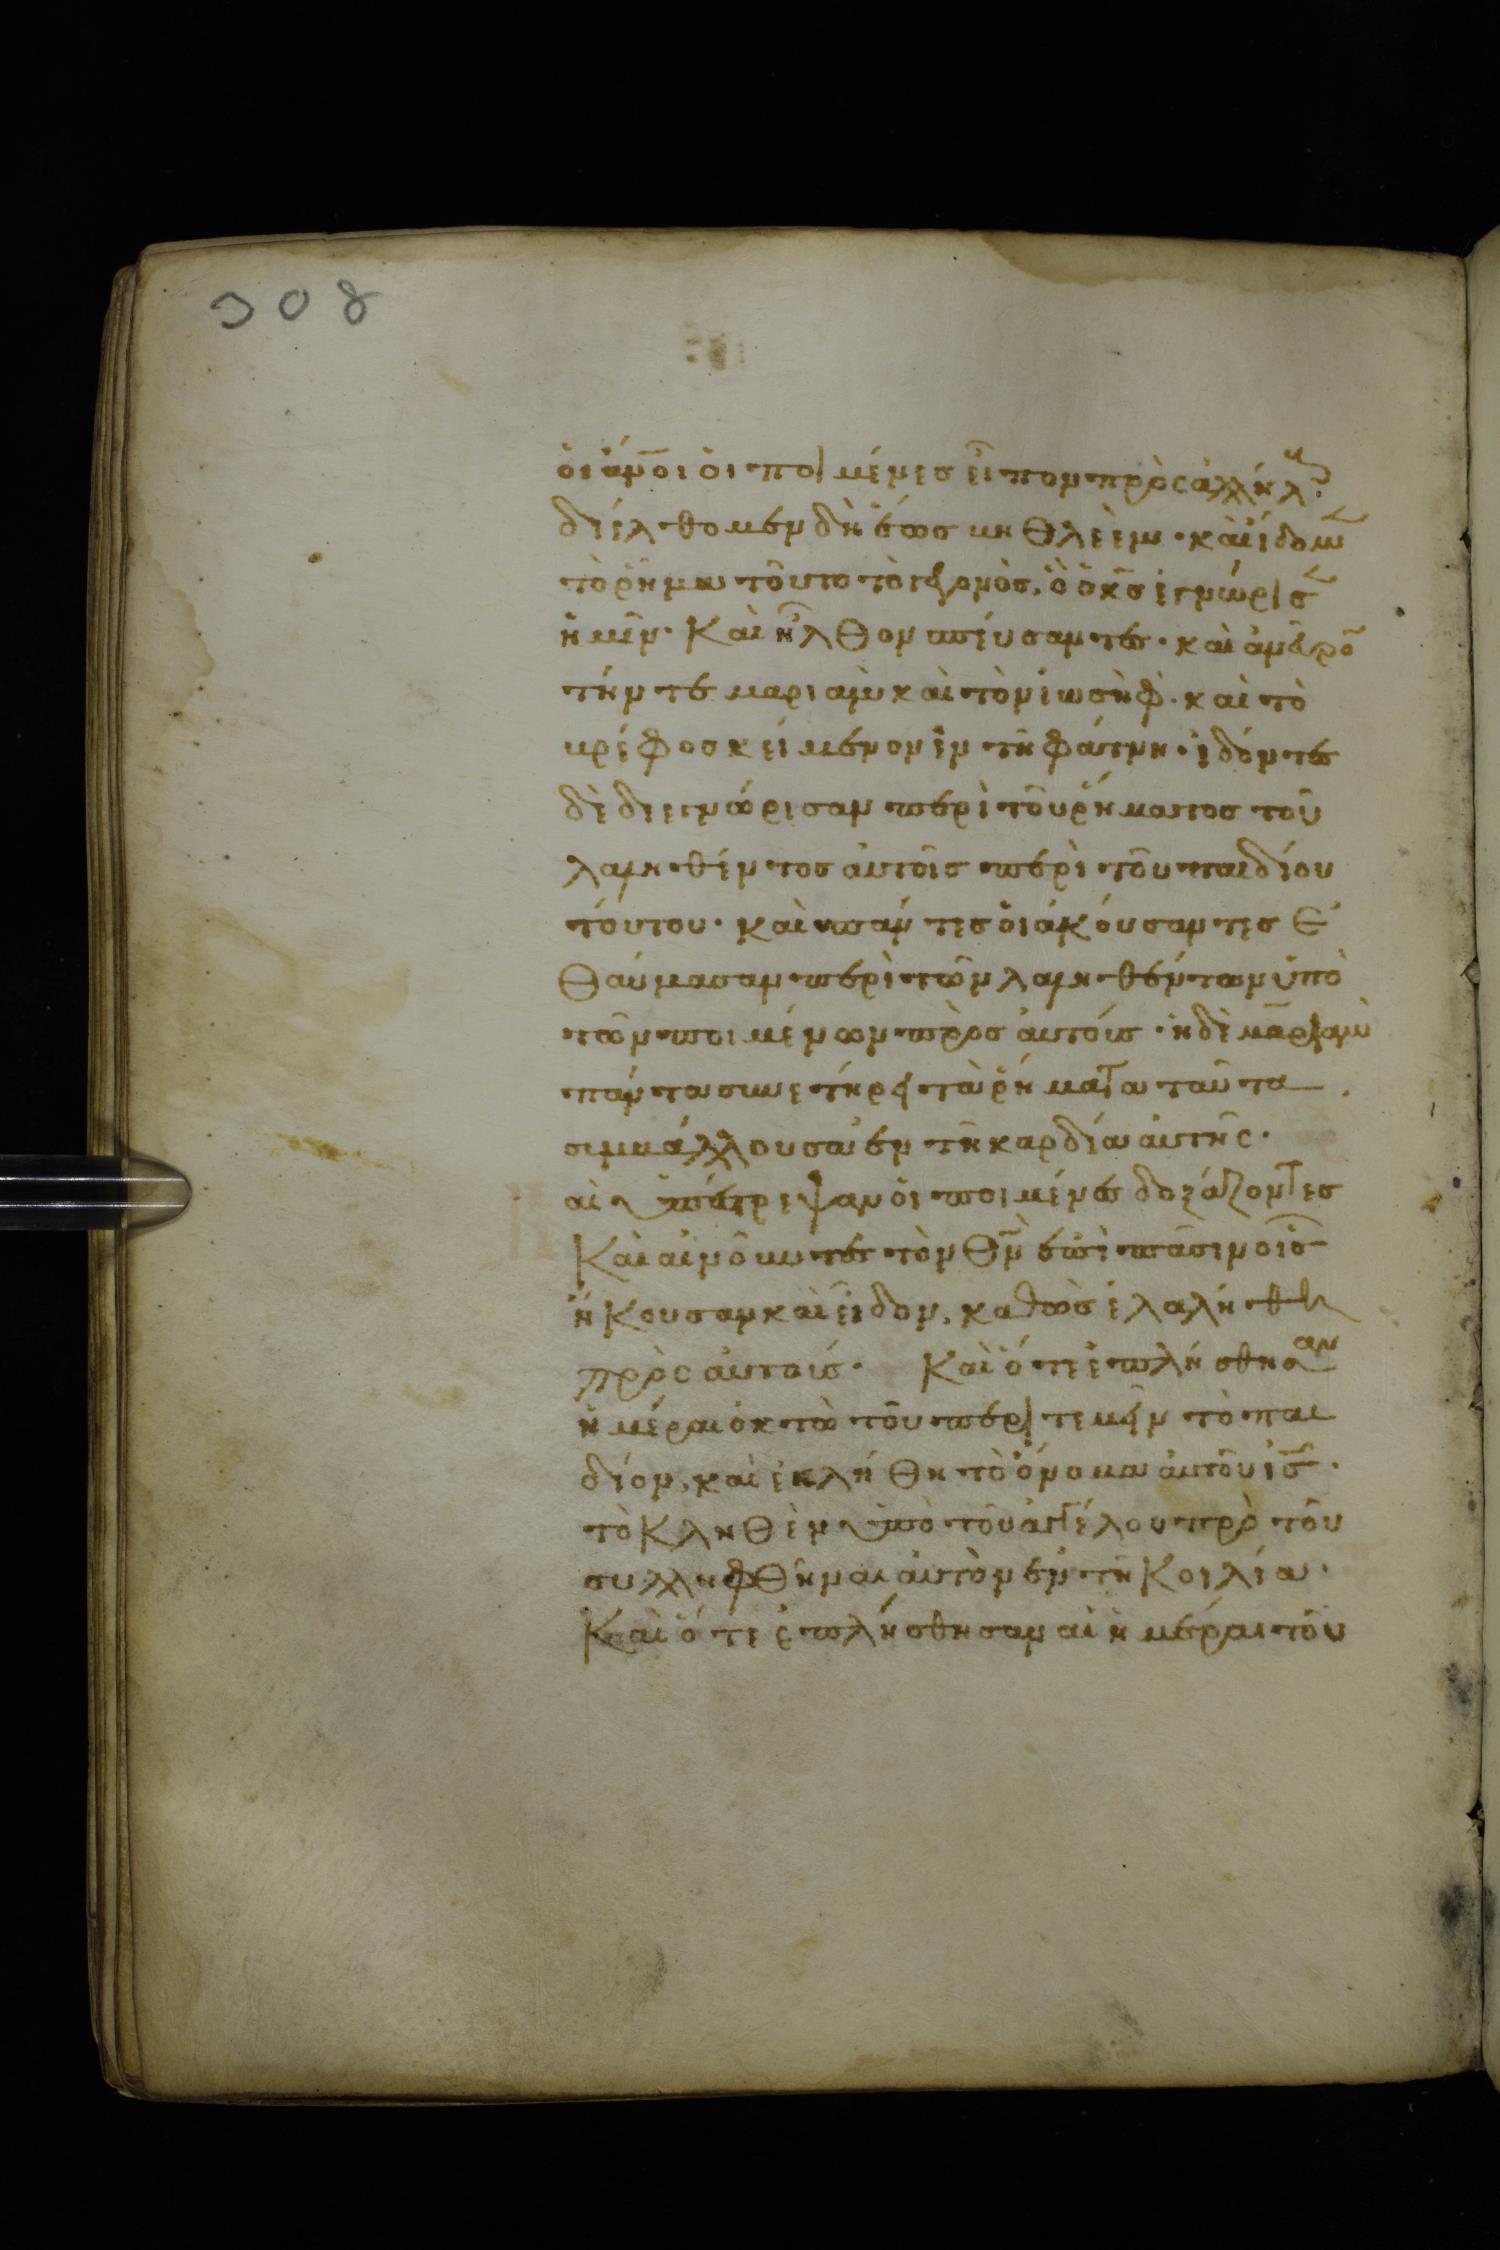 308
ὁι ἄν̅οι ὁι ποιμένες εἶπον πρὸς ἀλλήλ
διέλθομεν δὴ ἕως βηθλεὲμ · καὶ ἴδωμ
τὸ ρῆμα τοῦτο τὸ γεγονὸς, ὃ ὁ κ̅ς ἐγνώρισ
ἡμῖν · Καὶ ἦλθον σπεύσαντες · καὶ ἀνεῦρο
τήν τε μαριὰμ καὶ τὸν ἰωσὴφ · καὶ τὸ
βρέφος κείμενον ἐν τῆ φάτνη · ἰδόντες
δὲ διεγνώρισαν περὶ τοῦ ρήματος τοῦ
λαληθέντος ἀυτοῖς περὶ τοῦ παιδίου
τούτου · καὶ πάντες ὁι ἀκόυσαντες ἐ
θαύμασαν περὶ τῶν λαληθέντων ὑπὸ
τῶν ποιμένων πρὸς ἀυτούς · ἡ δὲ μαριὰμ
πάντα συνετήρει τὰ ρήματα ταῦτα
συμβάλλουσα ἐν τῆ καρδία ἀυτῆς ·
αὶ ὑπέστρεψαν ὁι ποιμένες δοξάζοντες
Καὶ αἰνοῦντες τὸν θ̅ν ἐπὶ πᾶσιν οἷς
ἤκουσαν καὶ εἶδον, καθὼς ἐλαλήθη
πρὸς ἀυτούς · Καὶ ὅτε ἐπλήσθησαν
ἡμέραι ὀκτὼ τοῦ περιτεμεῖν τὸ παι
δίον, καὶ ἐκλήθη τὸ ὄνομα ἀυτοῦ ι̅ς ·
τὸ Κληθὲν ὑπὸ τοῦ ἀγγέλου πρὸ τοῦ
συλληφθῆναι ἀυτὸν ἐν τῆ Κοιλία ·
Καὶ ὅτε ἐπλήσθησαν αἱ ἡμέραι τοῦ